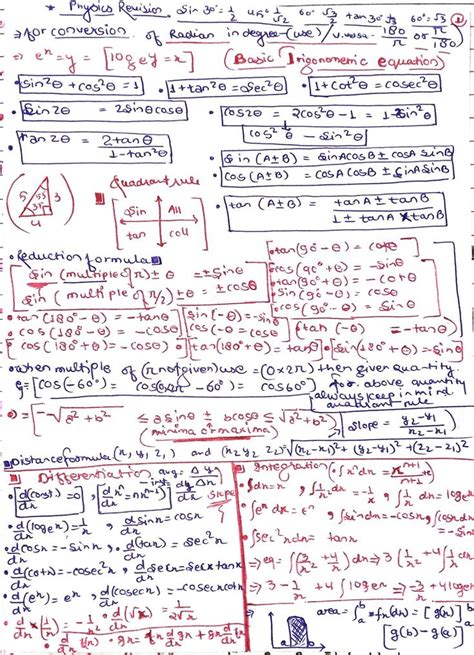 * Physics Revision sin 30° = 1/2 45° 1/√2 60° √3/2 tan 30° 1/√3 60° = √3
⇒ for conversion of Radian in degree (use) / v.versa - 180/π or π/180
⇒ eˣ = y = [log e y = x] (Basic Trigonometric equation)
• sin²θ + cos²θ = 1 • 1 + tan²θ = sec²θ • 1 + cot²θ = cosec²θ
• sin2θ = 2sinθcosθ • cos2θ = 2cos²θ - 1 = 1 - 2sin²θ
cos²θ - sin²θ
• tan2θ = 2tanθ / 1 - tan²θ
• sin (A±B) = sinAcosB ± cosA sinB
• cos (A±B) = cosA cosB ± sinA sinB
• tan (A±B) = tanA ± tanB / 1 ± tanA × tanB
5 53 3 37 4
Quadrant rule
sin All
tan
• Reduction formula
sin (multiple of π) ± θ = ± sinθ
sin (multiple of π/2) ± θ = ± cosθ
• tan (90° - θ) = cotθ
• cos (90° + θ) = - sinθ
• tan (90° + θ) = - cotθ
• sin (90° - θ) = cosθ
• cos (90° - θ) = sinθ
• tan (180° - θ) = - tanθ • sin (-θ) = - sinθ
• cos (180° - θ) = - cosθ • cos (-θ) = cosθ (tan (-θ) = - tanθ)
• cos (180° + θ) = - cosθ • tan (180° + θ) = tanθ • sin (180° + θ) = - sinθ
• when multiple of (π not given) use = (0 × 2π) then given quantity
[cos (-60°) = - 60°) = cos 60°] for above quantity
always keep in mind
quadrant rule
⇒ [-√a² + b² ≤ a sinθ ± b cosθ ≤ √a² + b²]
(minima or maxima)
slope = y₂ - y₁ / x₂ - x₁
Distance formula (x, y, z,) and (x₂ y₂ z₂) √(x₂-x₁)² + (y₂-y₁)² + (z₂-z₁)²
Differentiation avg = Δy/Δx
slope
• d(cost)/dx = 0 , dxⁿ/dx = nxⁿ⁻¹
• d(log e x)/dx = 1/x , d sinx/dx = cosx
• d cosx/dx = - sinx , d(tan)/dx = sec²x
• d cotx/dx = - cosec²x , d secx/dx = secx tanx
• d(eˣ)/dx = eˣ , d(cosecx)/dx = - cosecx cotx
• d/dx (1/x) = -1/x² • d/dx (√x) = 1/2√x
Integration • ∫xⁿdx = xⁿ⁺¹/n+1
• ∫dx = x , ∫1/x² dx = -1/x , ∫1/x dx = log ex
• ∫eˣ dx = eˣ , ∫sinx dx = - cosx , ∫cosx dx = sinx
• ∫sec²x dx = tanx
⇒ eq = ∫(3/x² + 4/x) dx ⇒ 3∫1/x² + 4∫1/x dx
⇒ 3 - 1/x + 4 ∫log ex ⇒ -3/x + 4 log ex
area = ∫ᵇₐ = fx(dx) = [g(x)]ᵇₐ
[g(b) - g(a)]
a b